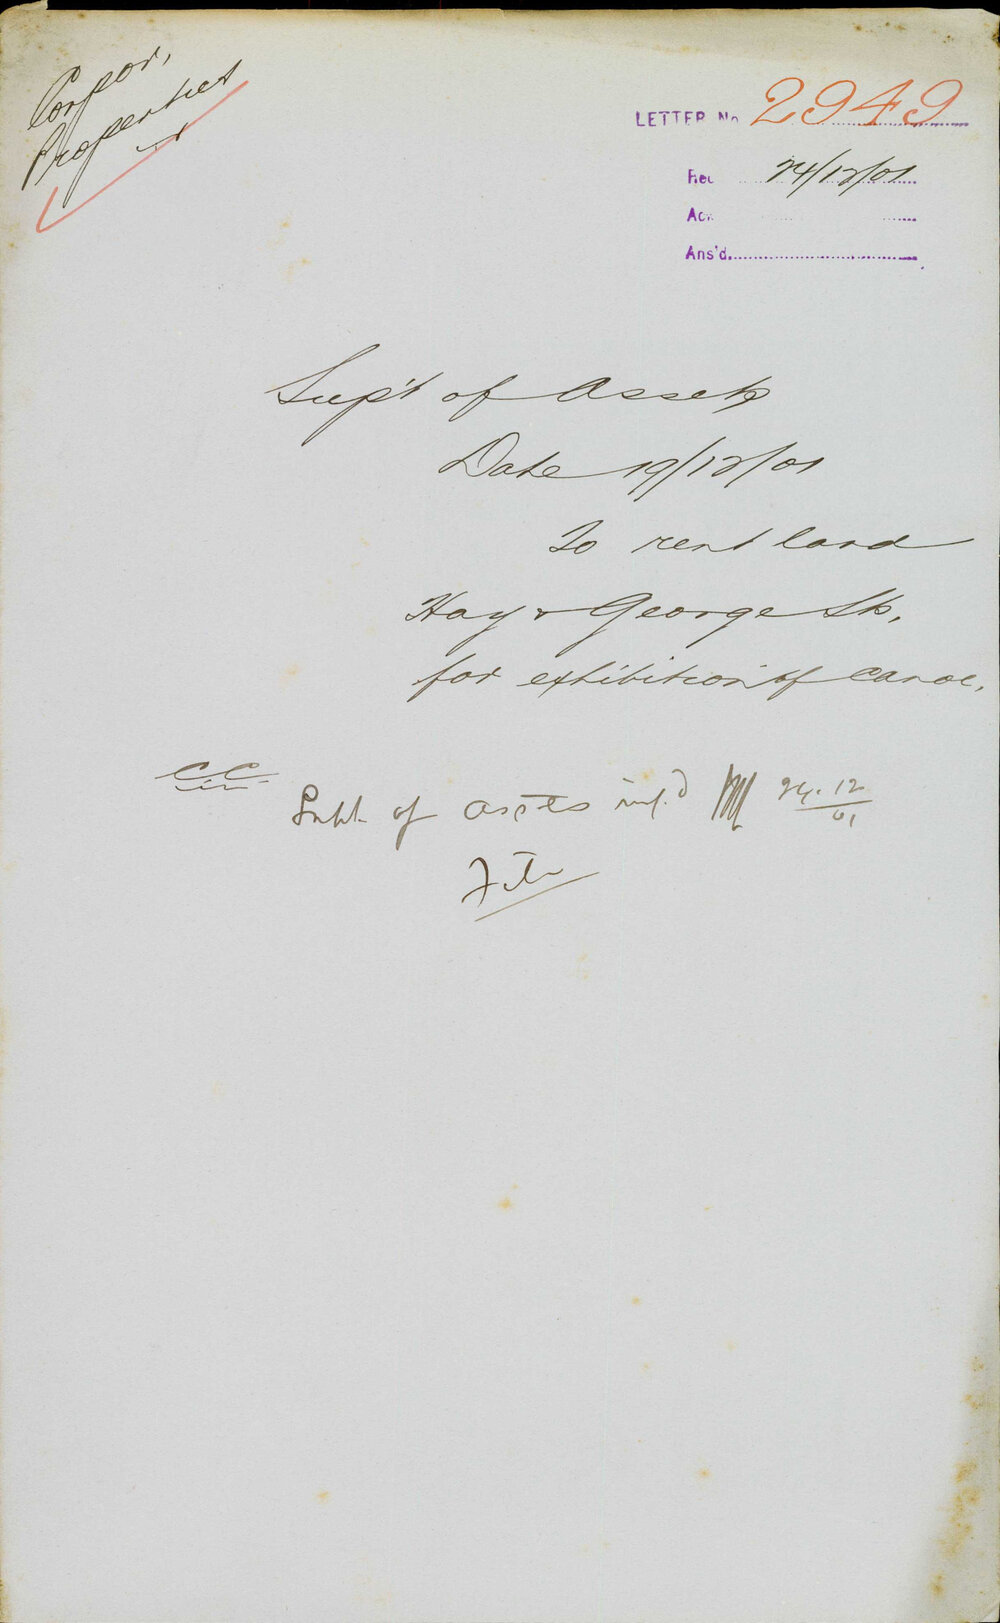 Corpor,
Properties
LETTER No 2949
Rec 24/12/01
Ack
Ans'd
Sup't of Assets
Date 19/12/01
To rent land
Hay & George Sts,
for exhibition of canoe.
CC
Supt. of assets inf.d 24.12
01
File